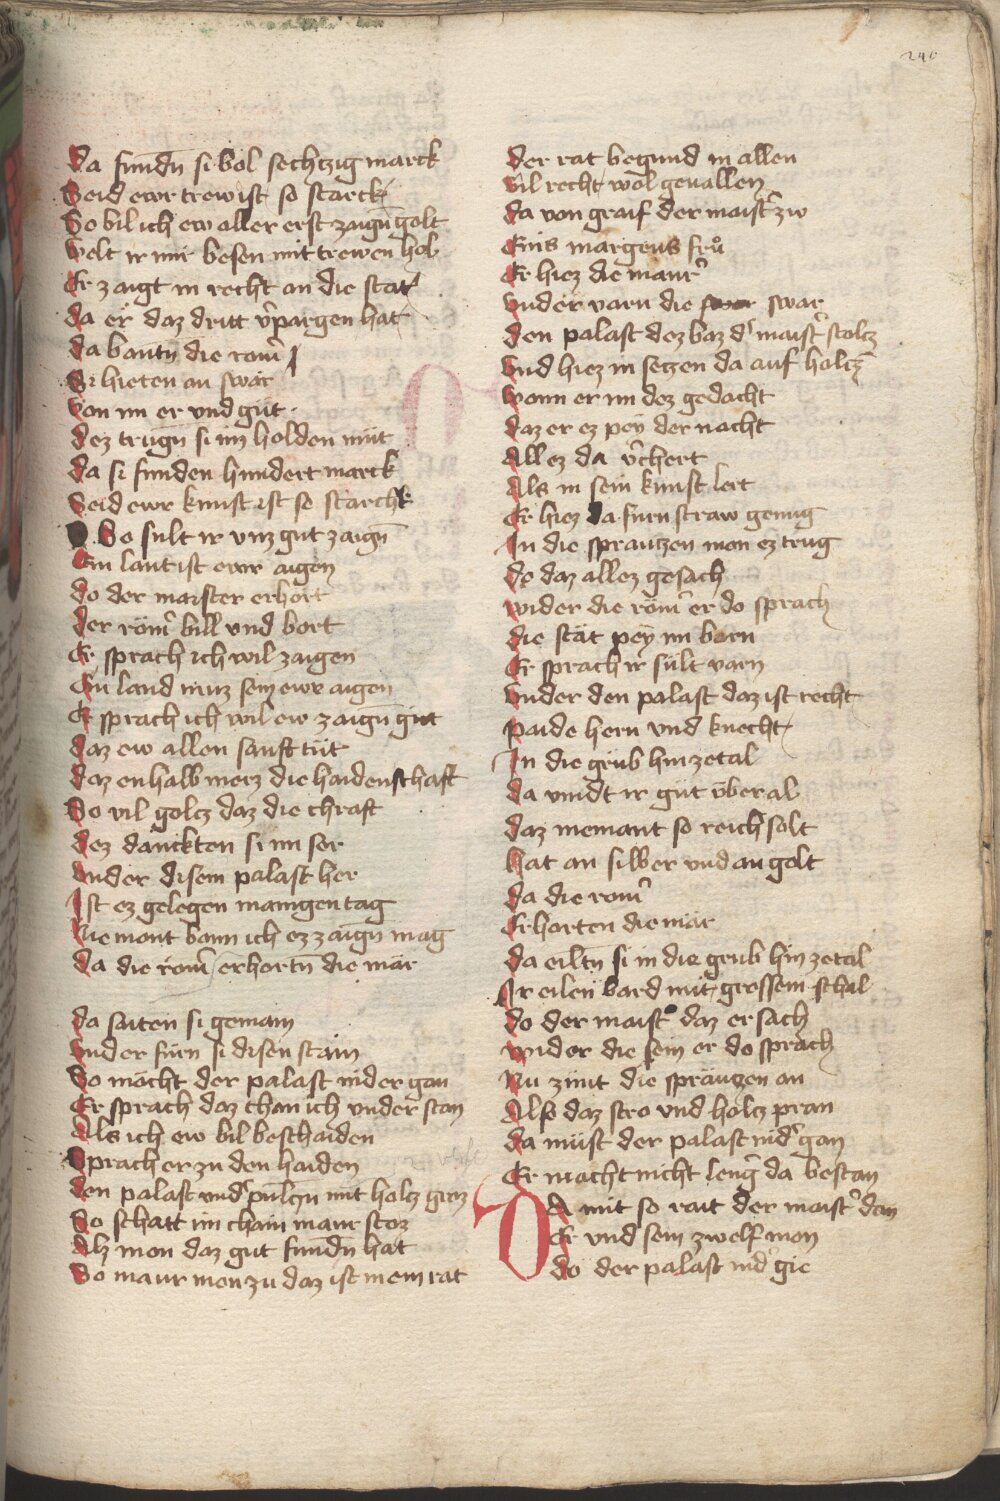 240
da fundn̄ si bol sechtzig marck
Seid ewr trew ist so starck
So bil ich ew aller erst zaign̄ golt
Welt ir mir besen mit trewen hold
Er zaigt in recht an die stat
da er daz dritt v̉pargen hat
da bautn̄ die rom̉
Si hieten an swär
Von im er vnd güt
dez trugn̄ si im holden müt
da si funden hundert marck
Seid ewr kunst ist so starchk
So sult ir vnz gut zaign̄
Ein laut ist ewr aigen
do der maister erhort
der röm̉ bill vnd bort
Er sprach ich wil zaigen
Ein land muz sein ewr aigen
Er sprach ich wil ew zaign̄ gut
daz ew allen sanft tüt
daz enhalb merz die haidenschaft
So vil goltz daz die chraft
dez danckten si im ser
Vnder disem palast her
Ist ez gelegen manigen tag
Niemont bann ich ez zaign̄ mag
da die rom̉ erhortn̄ die mär
da saiten si gemain
Vnd er fürn si disen stain
So möcht der palast nider gan
Er sprach daz chan ich vnder stan
Als ich ew bil beschaiden
Sprach er zu den haiden
den palast vnd̉ pultzn̄ mit holtz groz
So schatt im chain maur stoz
Alz mon daz gut fundn̄ hat
So maur mon zu daz ist mein rat
der rat begund in allen
Vil recht wol geuallen
da von graif der maist̉ zw
Eins margens frů
Er hiez die maur̉
Vnder varn die swar
den palast dez baz d̉ maist̉ stoltz
Vnd hiez in setzen da auf holtz
wann er im dez gedacht
daz er ez pey der nacht
Allez da v̉chert
Als in sein kunst lert
Er hiez da furn straw genug
In die sprautzen mon ez trug
do daz allez gesach
wider die röm̉ er do sprach
die stät pey im born
Er sprach ir sült varn
Vnder den palast daz ist recht
paide hern vnd knecht
In die grub hin zetal
da vindt ir güt v̈ber al
daz niemant so reich solt
Hat an silber vnd an golt
da die rom̉
Erhorten die mär
da eiltn̄ si in die grub hin zetal
Ir eilen bard mit grossem schal
do der maist̉ daz ersach
wider die sein er do sprach
Nu zünt die spräutzen an
Alß daz stro vnd holtz pran
da müst der palast nid̉ gan
Er macht nicht leng̉ da bestan
DA mit so rait der maist̉ dan
Er vnd sein zwelf mon
do der palast nid̉ gie